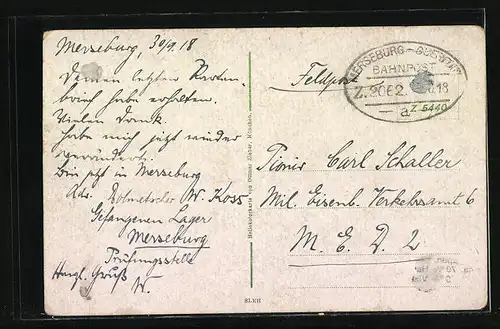 Merseburg, 30/9. 18
Deinen letzten Karten
brief habe erhalten.
Vielen Dank.
habe mich jetzt wieder
verändert.
Bin jetzt in Merseburg
Adr. Dolmetscher W. Koss
Gefangenen Lager
Merseburg
Prüfungsstelle
Herzl. Gruß
W.
Feldpost
MERSEBURG -
BAHNPOST
Z. 2062 18
- a -
Z 5440
Pionier Carl Schaller
Mil. Eisenb. Verkehrsamt 6
M. E. D. 2